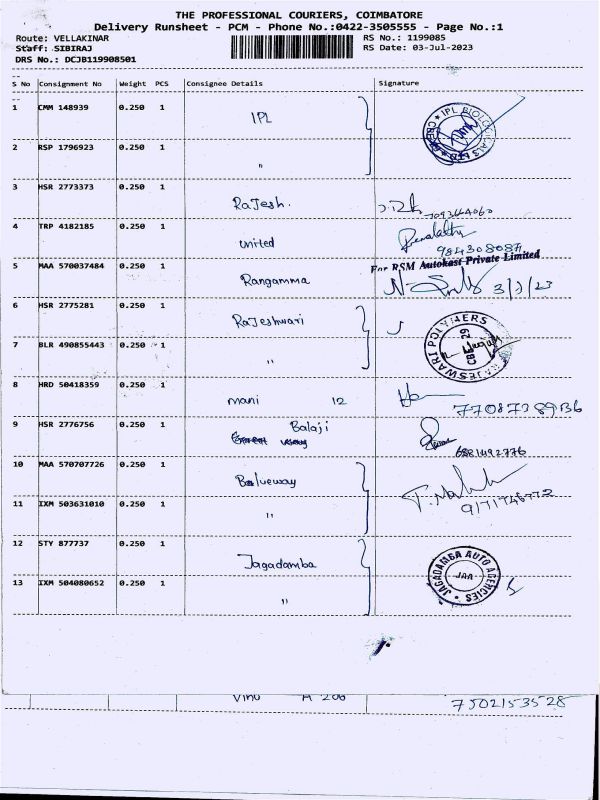 THE PROFESSIONAL COURIERS, COIMBATORE
Delivery Runsheet - PCM - Phone No.:0422-3505555 - Page No.:1
Route: VELLAKINAR RS No.: 1199085
Staff: SIBIRAJ RS Date: 03-Jul-2023
DRS No.: DCJB119908501
S No Consignment No Weight PCS Consignee Details Signature
1 CMM 148939 0.250 1 IPL IPL BIOLOGICALS
2 RSP 1796923 0.250 1 "
3 HSR 2773373 0.250 1 Rajesh.
4 TRP 4182185 0.250 1 United
9843080871
5 MAA 570037484 0.250 1 Rangamma For RSM Autokast Private Limited
3/7/23
6 HSR 2775281 0.250 1 Rajeshwari RAJESWARI POLYMERS CBE 29
7 BLR 490855443 0.250 1 "
8 HRD 50418359 0.250 1 mani 12
9 HSR 2776756 0.250 1 Balaji
6381492776
10 MAA 570707726 0.250 1 Blueway
11 IXM 503631010 0.250 1 "
12 STY 877737 0.250 1 Jagadamba JAGADAMBA AUTO AGENCIES JAA
13 IXM 504080652 0.250 1 "
Vinu A 206 7502153528